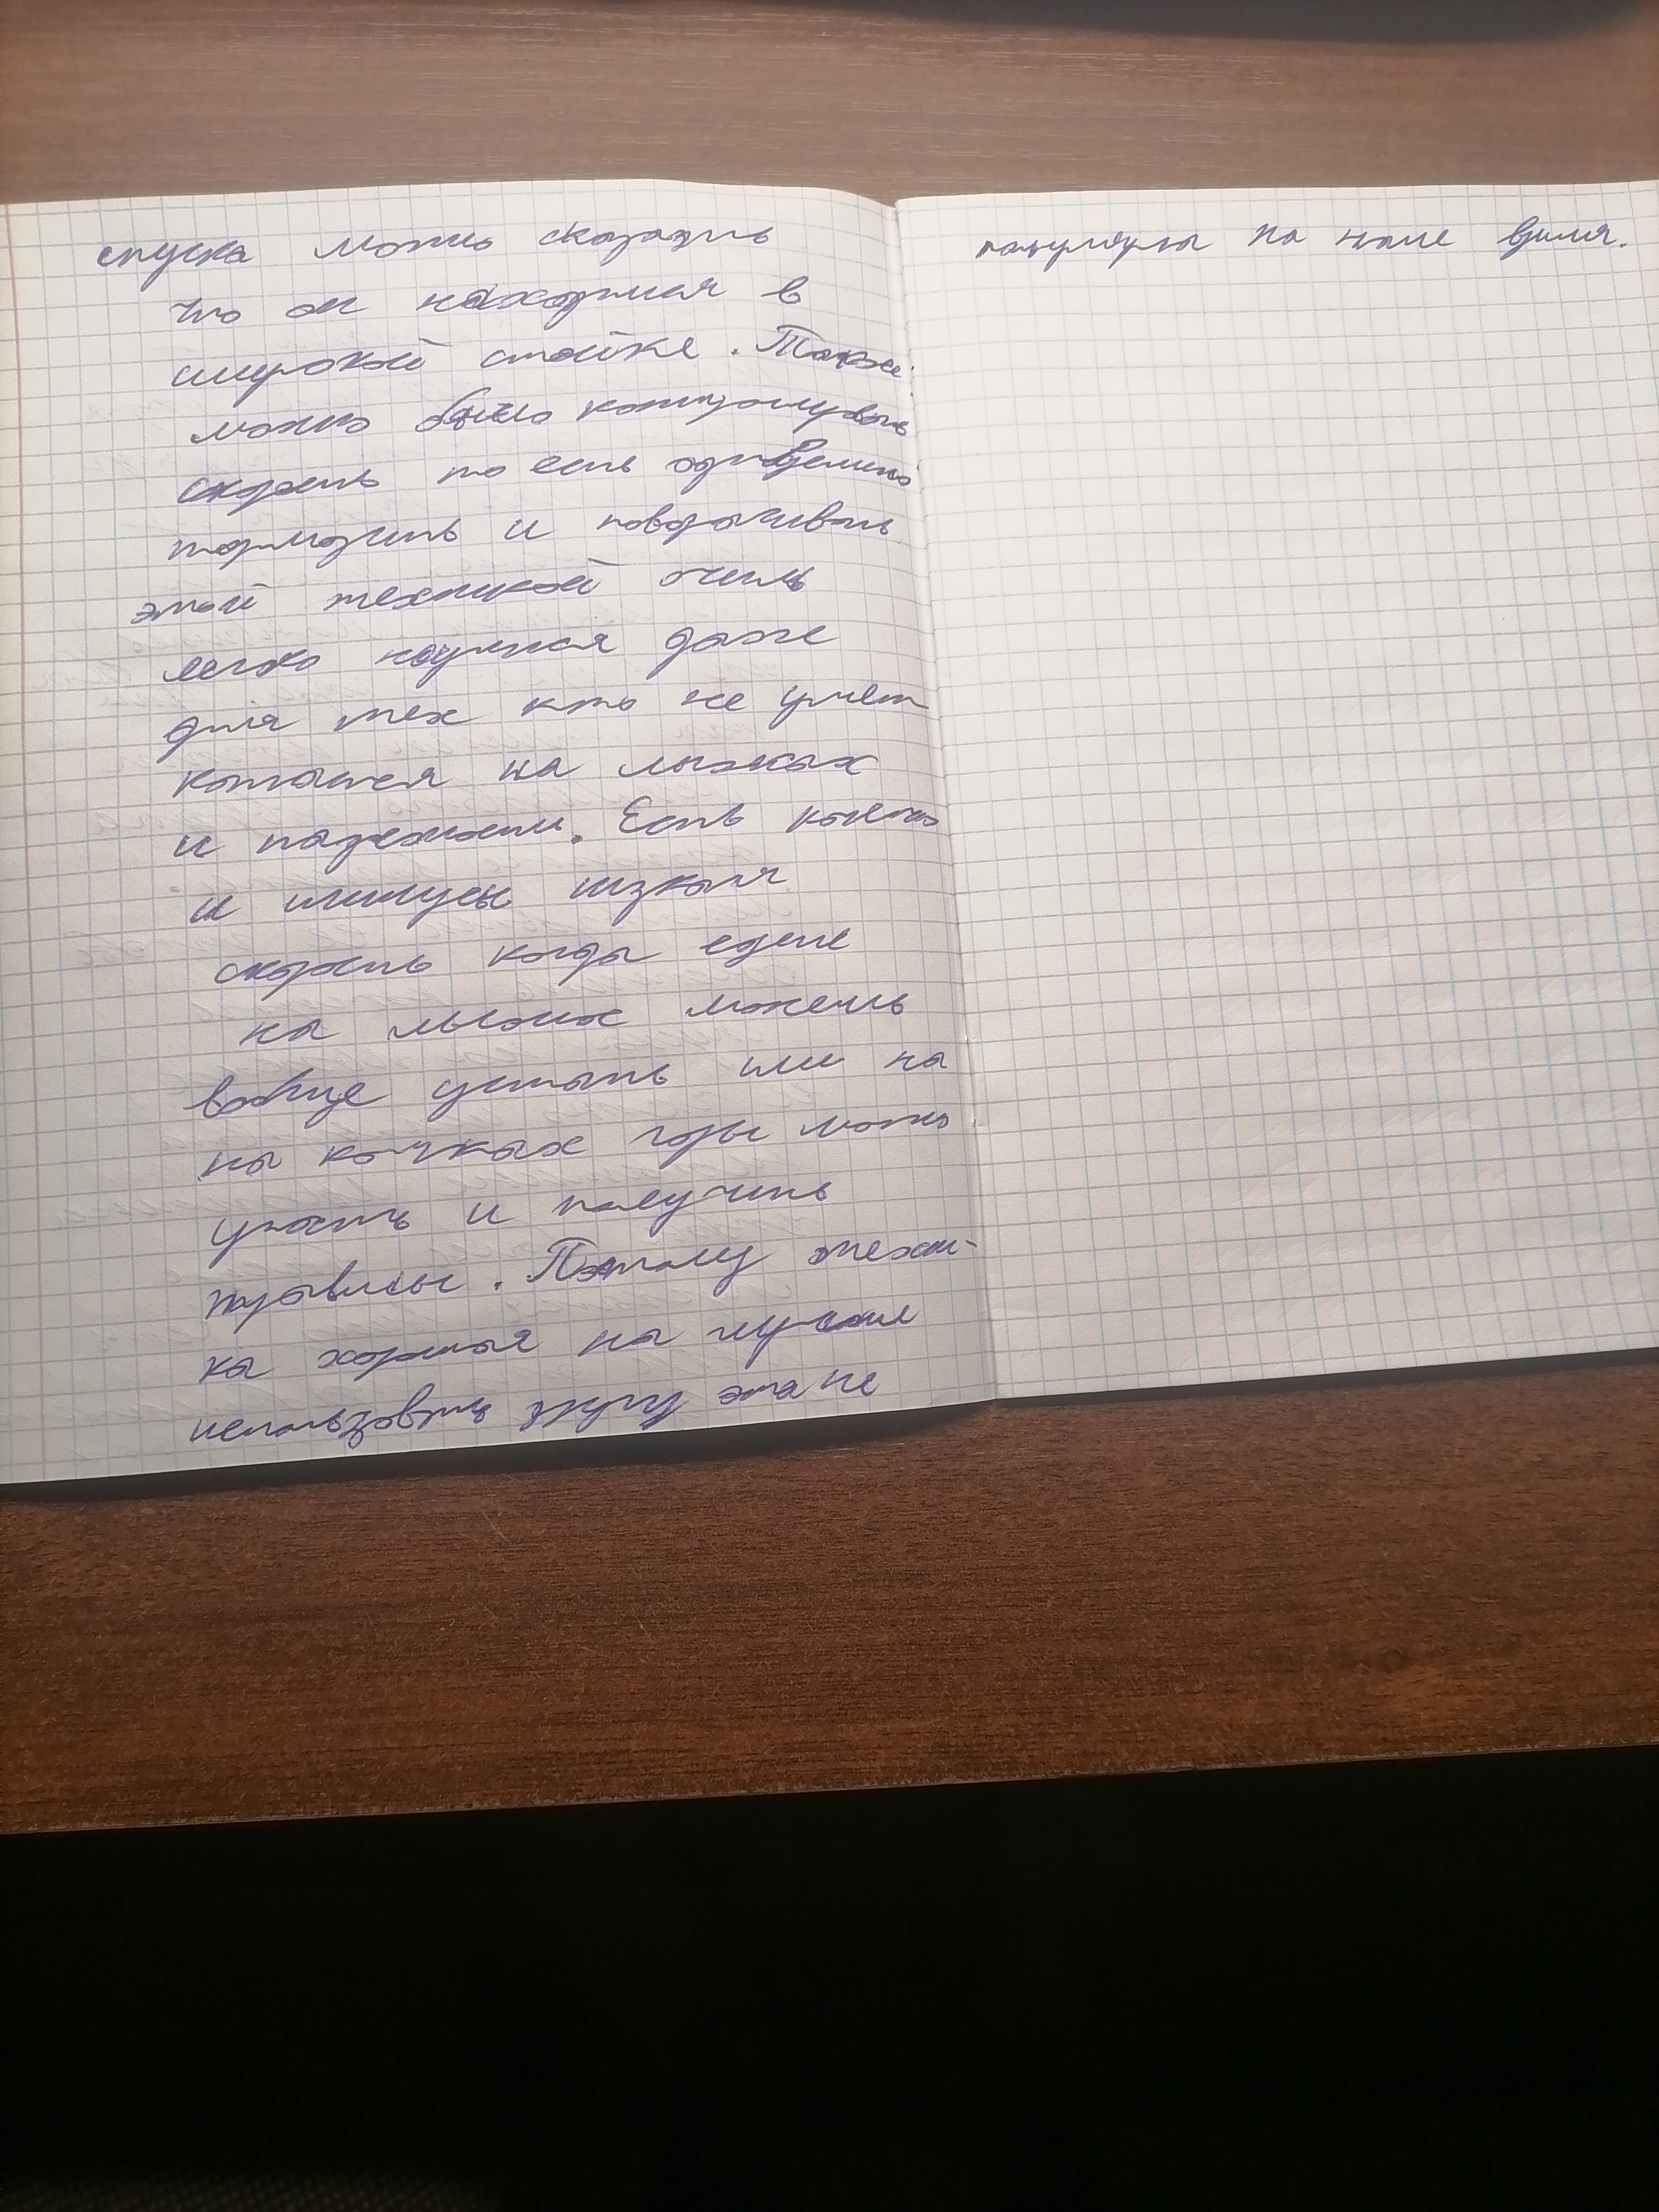 спуска можно сказать
что он находится в
широкой стойке. Также
можно было контролировать
скорость то есть одновременно
тормозить и поворачивать
этой техникой очень
легко научися даже
для тех кто не умеет
кататся на лыжах
и надежность. Есть конечно
и минусы низкая
скорость когда едеш
на лыжах можешь
вобще устать или на
на кочках горы можно
упасть и получить
травмы. Поэтому техни-
ка хорошая но
использовать эта не
популярна на наше время.